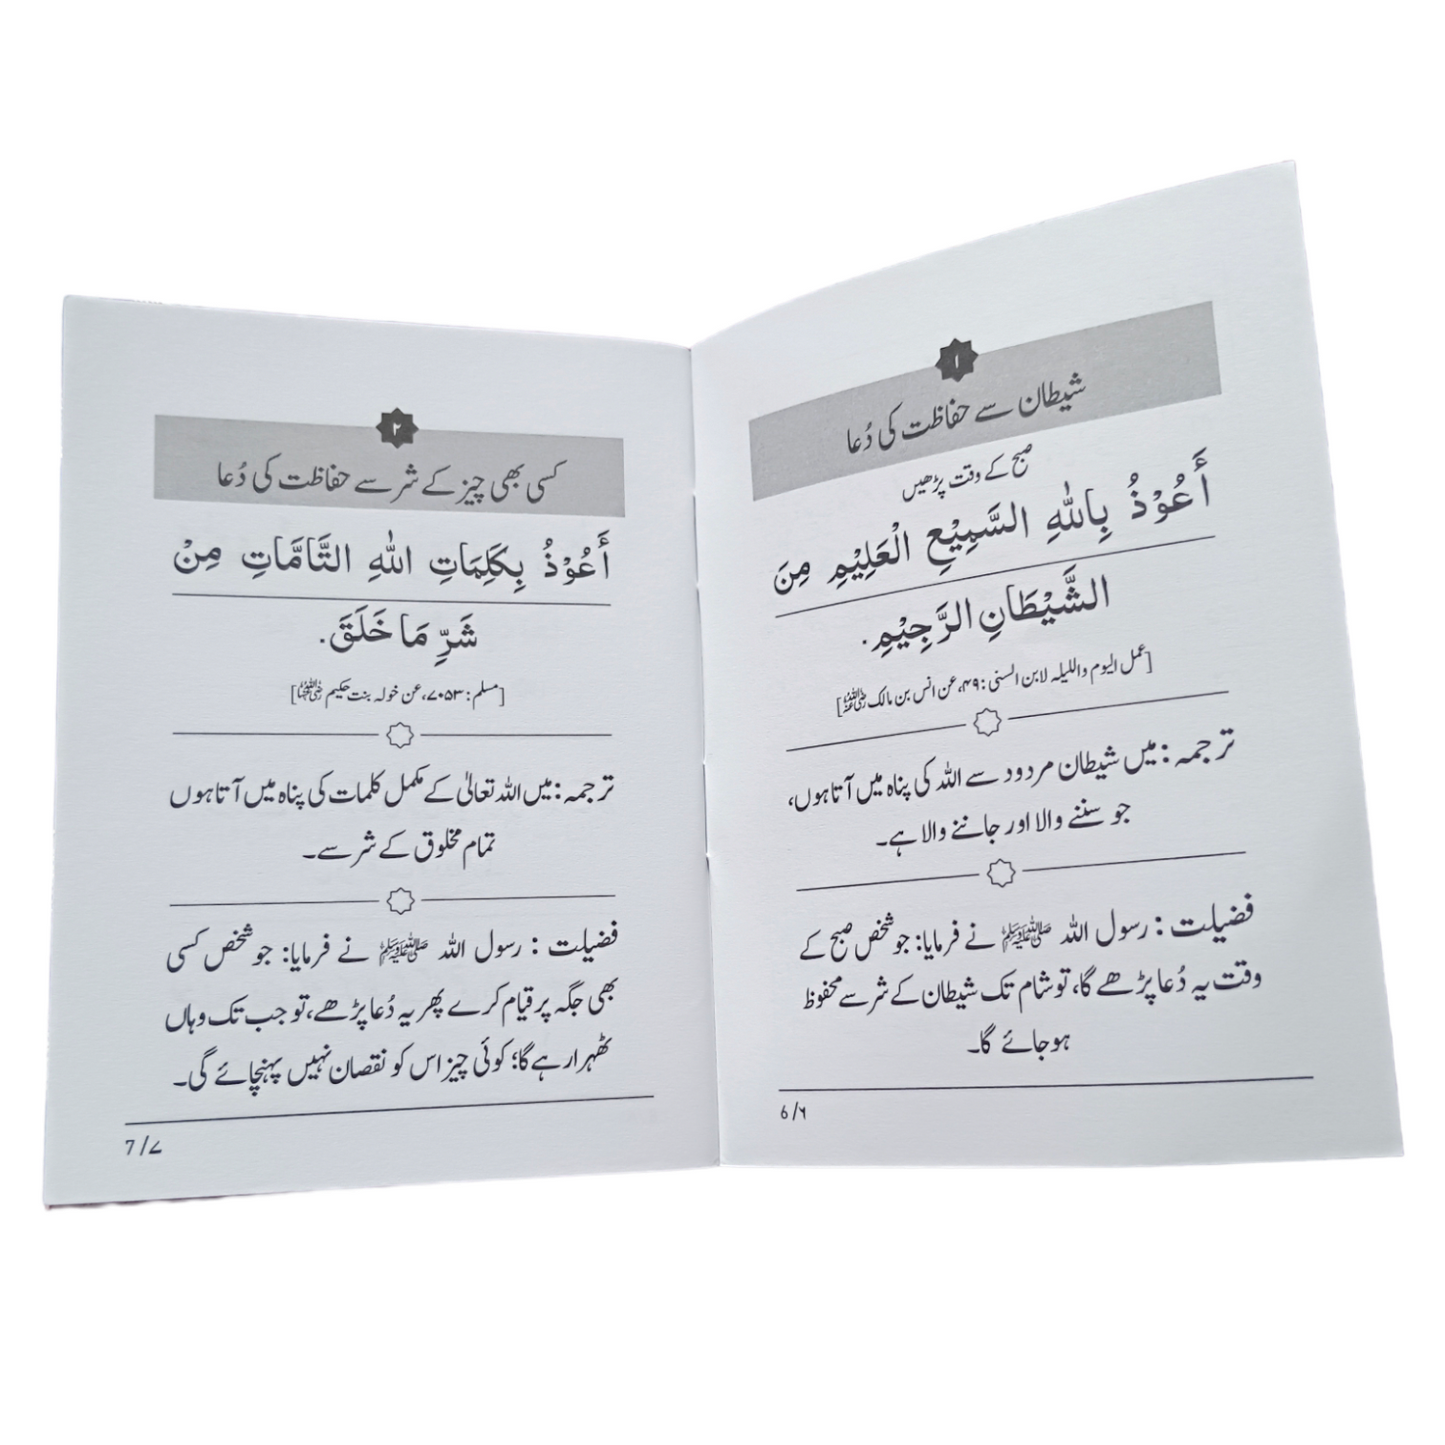 ۱
شیطان سے حفاظت کی دُعا
صبح کے وقت پڑھیں
أَعُوْذُ بِاللّٰهِ السَّمِيْعِ الْعَلِيْمِ مِنَ
الشَّيْطَانِ الرَّجِيْمِ.
[عمل الیوم واللیلہ لابن السنی: ۴۹، عن انس بن مالک رضی اللہ عنہ]
ترجمہ: میں شیطان مردود سے اللہ کی پناہ میں آتا ہوں،
جو سننے والا اور جاننے والا ہے۔
فضیلت: رسول اللہ ﷺ نے فرمایا: جو شخص صبح کے
وقت یہ دُعا پڑھے گا، تو شام تک شیطان کے شر سے محفوظ
ہو جائے گا۔
6/۶
۲
کسی بھی چیز کے شر سے حفاظت کی دُعا
أَعُوْذُ بِكَلِمَاتِ اللّٰهِ التَّامَّاتِ مِنْ
شَرِّ مَا خَلَقَ.
[مسلم: ۷۰۵۳، عن خولہ بنت حکیم رضی اللہ عنہا]
ترجمہ: میں اللہ تعالیٰ کے مکمل کلمات کی پناہ میں آتا ہوں
تمام مخلوق کے شر سے۔
فضیلت: رسول اللہ ﷺ نے فرمایا: جو شخص کسی
بھی جگہ پر قیام کرے پھر یہ دُعا پڑھے، تو جب تک وہاں
ٹھہرا رہے گا؛ کوئی چیز اس کو نقصان نہیں پہنچائے گی۔
7/۷